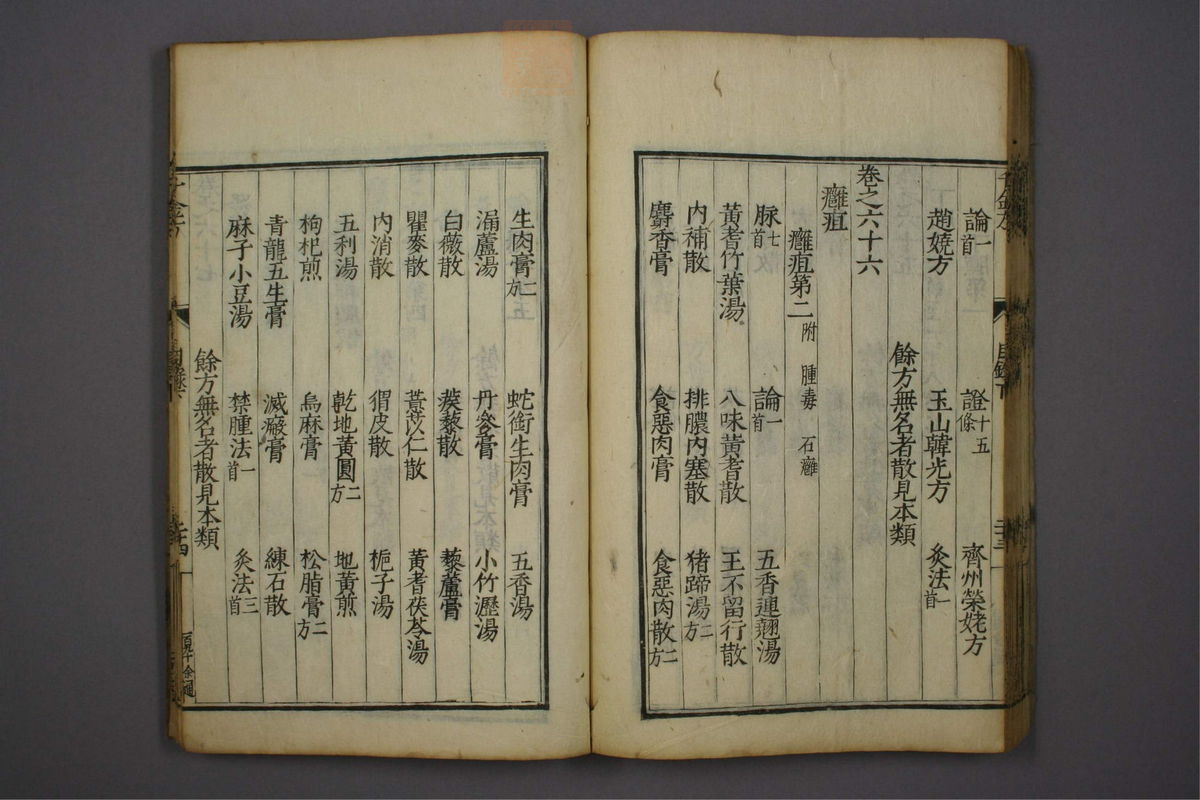 論一首 證十五條 齊州榮姥方
趙嬈方 玉山韓光方 灸法一首
餘方無名者散見本類
卷之六十六
癰疽
癰疽第二附 腫毒 石癰
脉七首 論一首 五香連翹湯
黃耆竹葉湯 八味黃耆散 王不留行散
內補散 排膿內塞散 猪蹄湯二方
麝香膏 食惡肉膏 食惡肉散二方
生肉膏二方 蛇銜生肉膏 五香湯
漏蘆湯 丹參膏 小竹瀝湯
白薇散 蒺藜散 藜蘆膏
瞿麥散 薏苡仁散 黃耆茯苓湯
內消散 猬皮散 梔子湯
五利湯 乾地黃圓二方 地黃煎
枸杞煎 烏麻膏 松脂膏二方
青龍五生膏 滅瘢膏 練石散
麻子小豆湯 禁腫法一首 灸法三首
餘方無名者散見本類